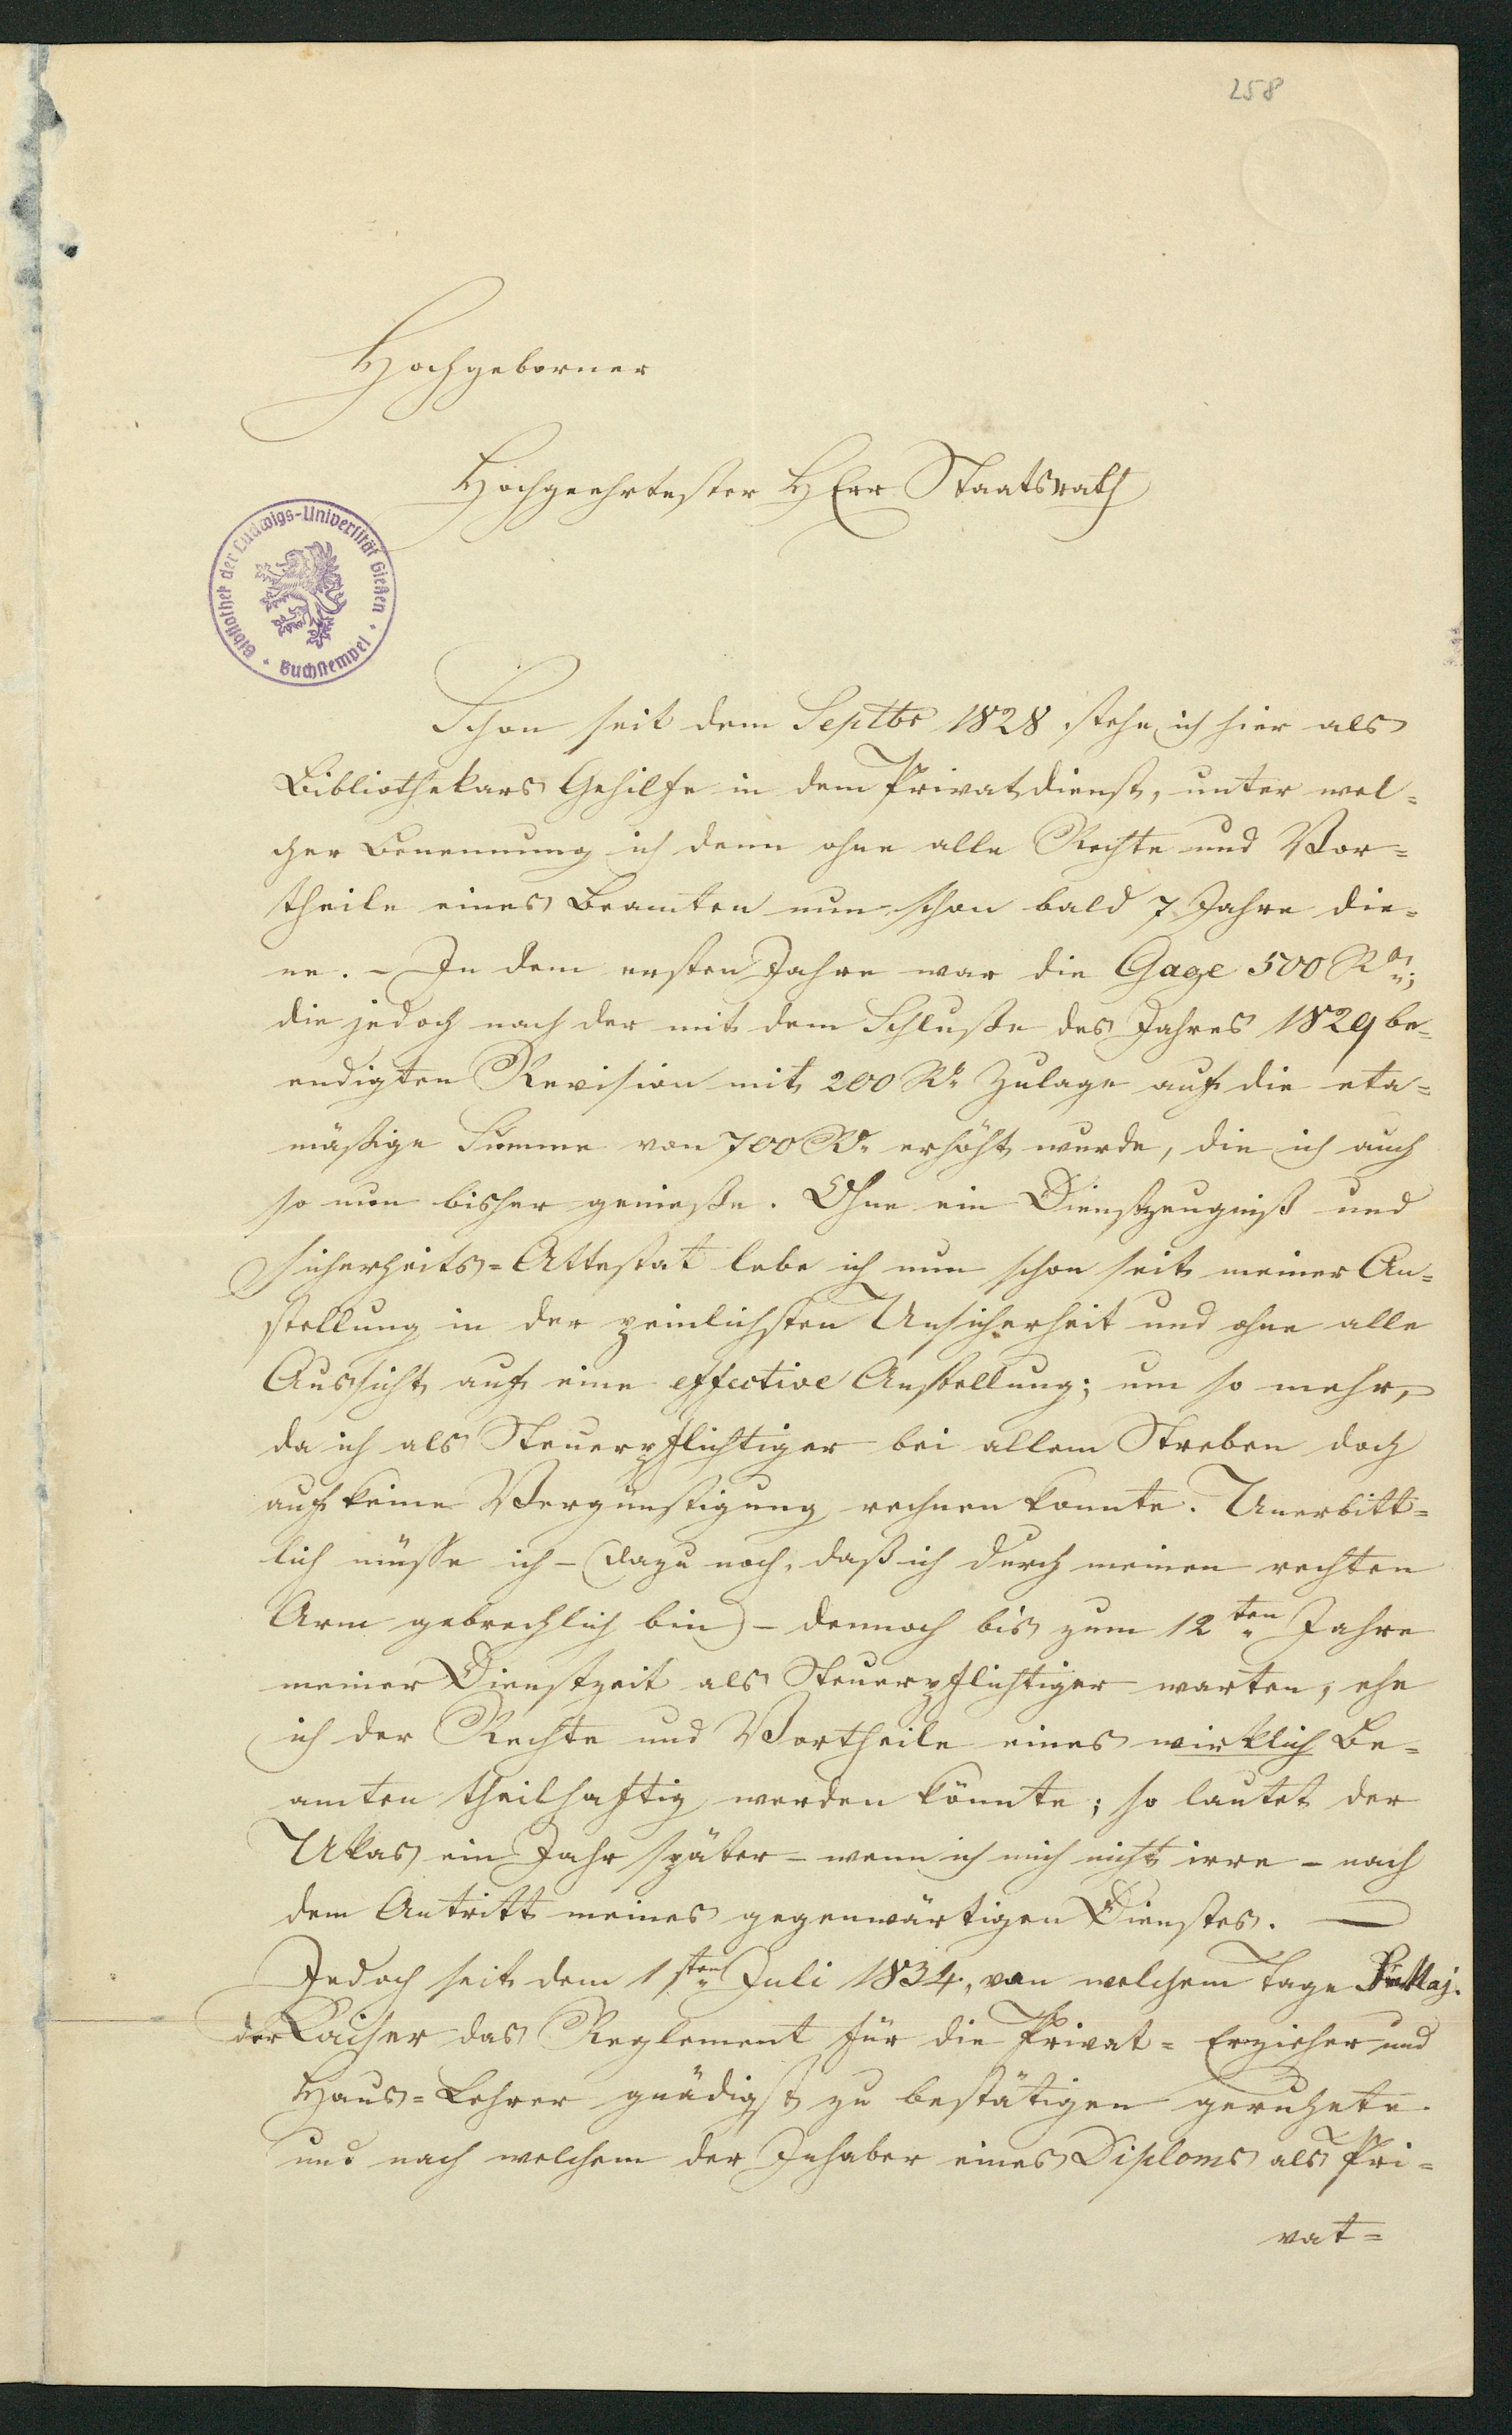 258
Hochgeborner
Hochgeehrtester HErr Staatsrath
Bibliothek der Ludwigs-Universität Gießen
Buchstempel
Schon seit dem Septbr 1828 stehe ich hier als
Bibliothekars Gehilfe in dem Privatdienst, unter wel=
cher Benennung ich denn ohne alle Rechte und Vor=
theile eines Beamten nun schon bald 7 Jahre die=
ne. – In dem ersten Jahre war die Gage 500
die jedoch nach der mit dem Schluße des Jahres 1829 be=
endigten Revision mit 200 Zulage auf die eta=
mäßige Summe von 700 erhöht wurde, die ich auch
so nun bisher genieße. Ohne ein Dienstzeugniß und
Sicherheits=Attestat lebe ich nun schon seit meiner An=
stellung in der peinlichsten Unsicherheit und ohne alle
Aussicht auf eine effective Anstellung; um so mehr,
da ich als Steuerpflichtiger bei allem Streben doch
auf keine Vergünstigung rechnen konnte. Unerbitt=
lich müsse ich – (dazu noch, daß ich durch meinen rechten
Arm gebrechlich bin) – dennoch bis zum 12ten Jahre
meiner Dienstzeit als Steuerpflichtiger warten, ehe
ich der Rechte und Vortheile eines wirklich Be=
amten theilhaftig werden könnte; so lautet der
Ukas ein Jahr später – wenn ich mich nicht irre – nach
dem Antritt meines gegenwärtigen Dienstes. —
Jedoch seit dem 1sten Juli 1834, von welchem Tage Maj.
der Kaiser das Reglement für die Privat=Erzieher und
Haus=Lehrer gnädigst zu bestätigen geruhete.
und nach welchem der Inhaber eines Diploms als Pri=
vat=